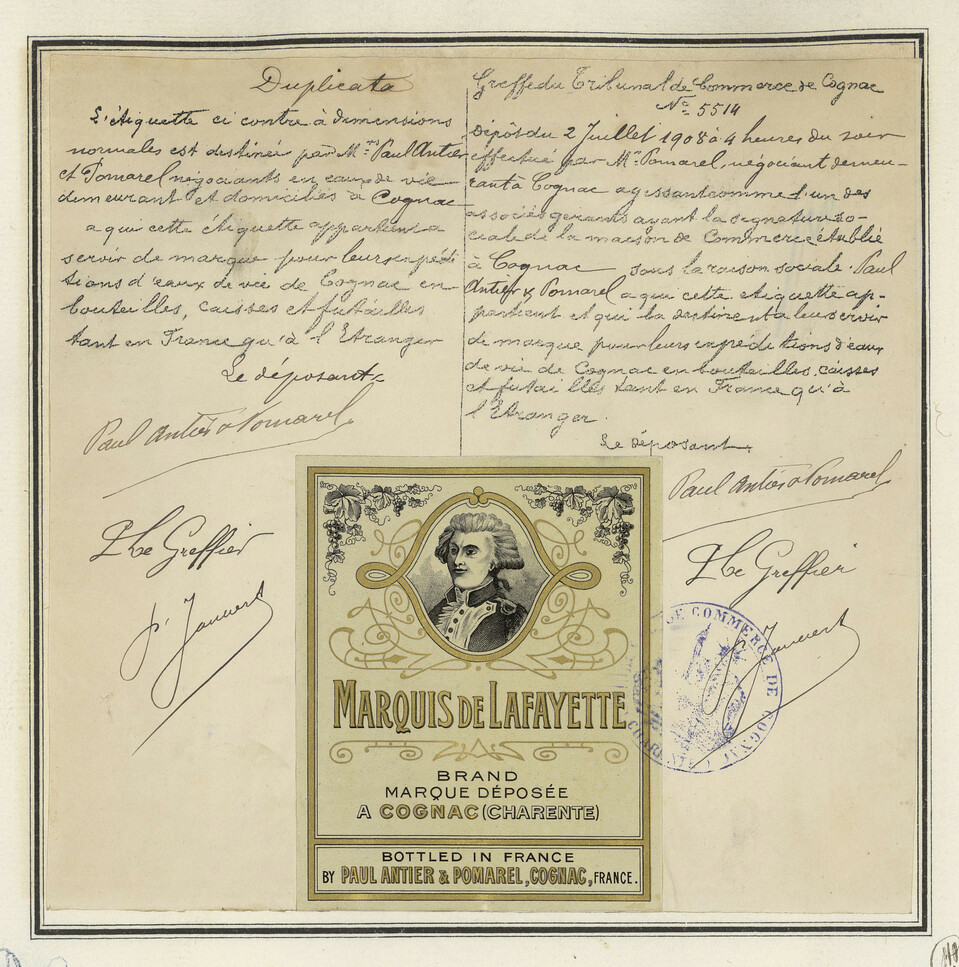 Duplicata
L'étiquette ci contre à dimensions
normales est destinée par Mrs Paul Antier
et Pomarel négociants en eaux de vie
demeurant et domiciliés à Cognac
a qui cette étiquette appartient a
servir de marque pour leurs expédi
tions d'eaux de vie de Cognac en
bouteilles, caisses et futailles
tant en France qu'à l'Etranger
Le déposant
Paul Antier & Pomarel
Le Greffier
Greffe du Tribunal de Commerce de Cognac
No 5514
Dépôt du 2 Juillet 1908 à 4 heures du soir
effectué par Mr Pomarel, négociant demeu-
rant à Cognac agissant comme l'un des
associés gérants ayant la signature so-
ciale de la maison de Commerce établie
à Cognac sous la raison sociale Paul
Antier & Pomarel a qui cette etiquette ap-
partient et qui la destinent a leur servir
de marque pour leurs expeditions d'eaux
de vie de Cognac en bouteilles, caisses
et futailles tant en France qu'à
l'Etranger.
Le déposant
Paul Antier & Pomarel
Le Greffier
DE COMMERCE DE COGNAC
MARQUIS DE LAFAYETTE
BRAND
MARQUE DÉPOSÉE
A COGNAC (CHARENTE)
BOTTLED IN FRANCE
BY PAUL ANTIER & POMAREL, COGNAC, FRANCE.